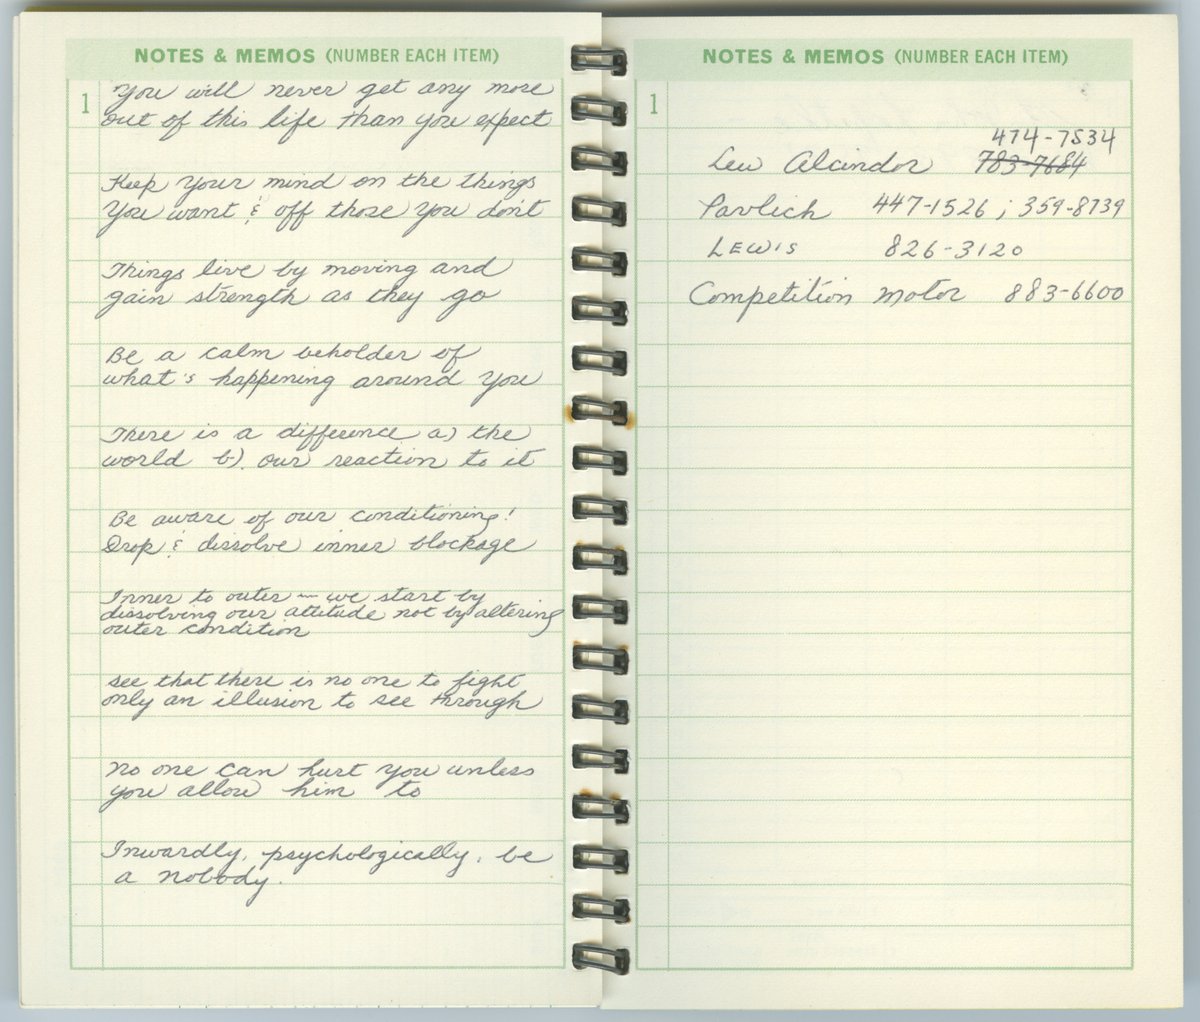 NOTES & MEMOS (NUMBER EACH ITEM)
1
You will never get any more
out of this life than you expect
Keep your mind on the things
You want & off those you don't
Things live by moving and
gain strength as they go
Be a calm beholder of
what's happening around you
There is a difference a) the
world b). our reaction to it
Be aware of our conditioning!
Drop & dissolve inner blockage
Inner to outer ~ we start by
dissolving our attitude not by altering
outer condition
see that there is no one to fight
only an illusion to see through
No one can hurt you unless
you allow him to
Inwardly, psychologically, be
a nobody.
NOTES & MEMOS (NUMBER EACH ITEM)
1
474-7534
Lew Alcindor 783-7684
Pavlich 447-1526 ; 359-8739
LEWIS 826-3120
Competition motor 883-6600